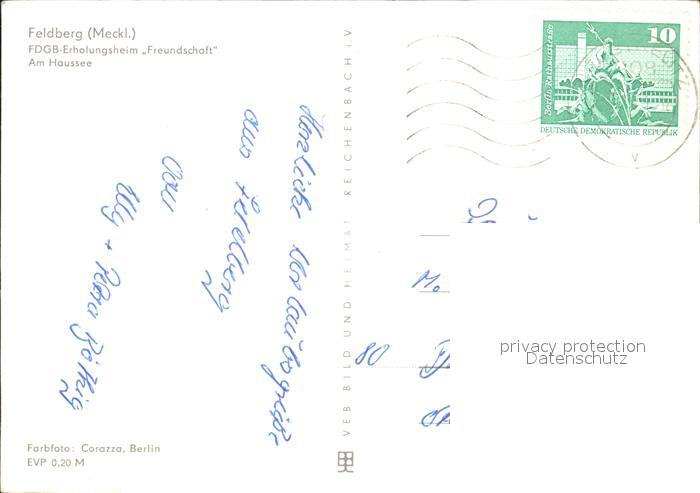 Feldberg (Meckl.)
FDGB-Erholungsheim „Freundschaft"
Am Haussee
Herzliche Urlaubsgrüße
aus Feldberg
von
Uly + Petra
Farbfoto: Corazza, Berlin
EVP 0,20 M
VEB BILD UND HEIMAT REICHENBACH i.V.
10
Berlin, Rathausstraße
DEUTSCHE DEMOKRATISCHE REPUBLIK
M.
80
privacy protection
Datenschutz